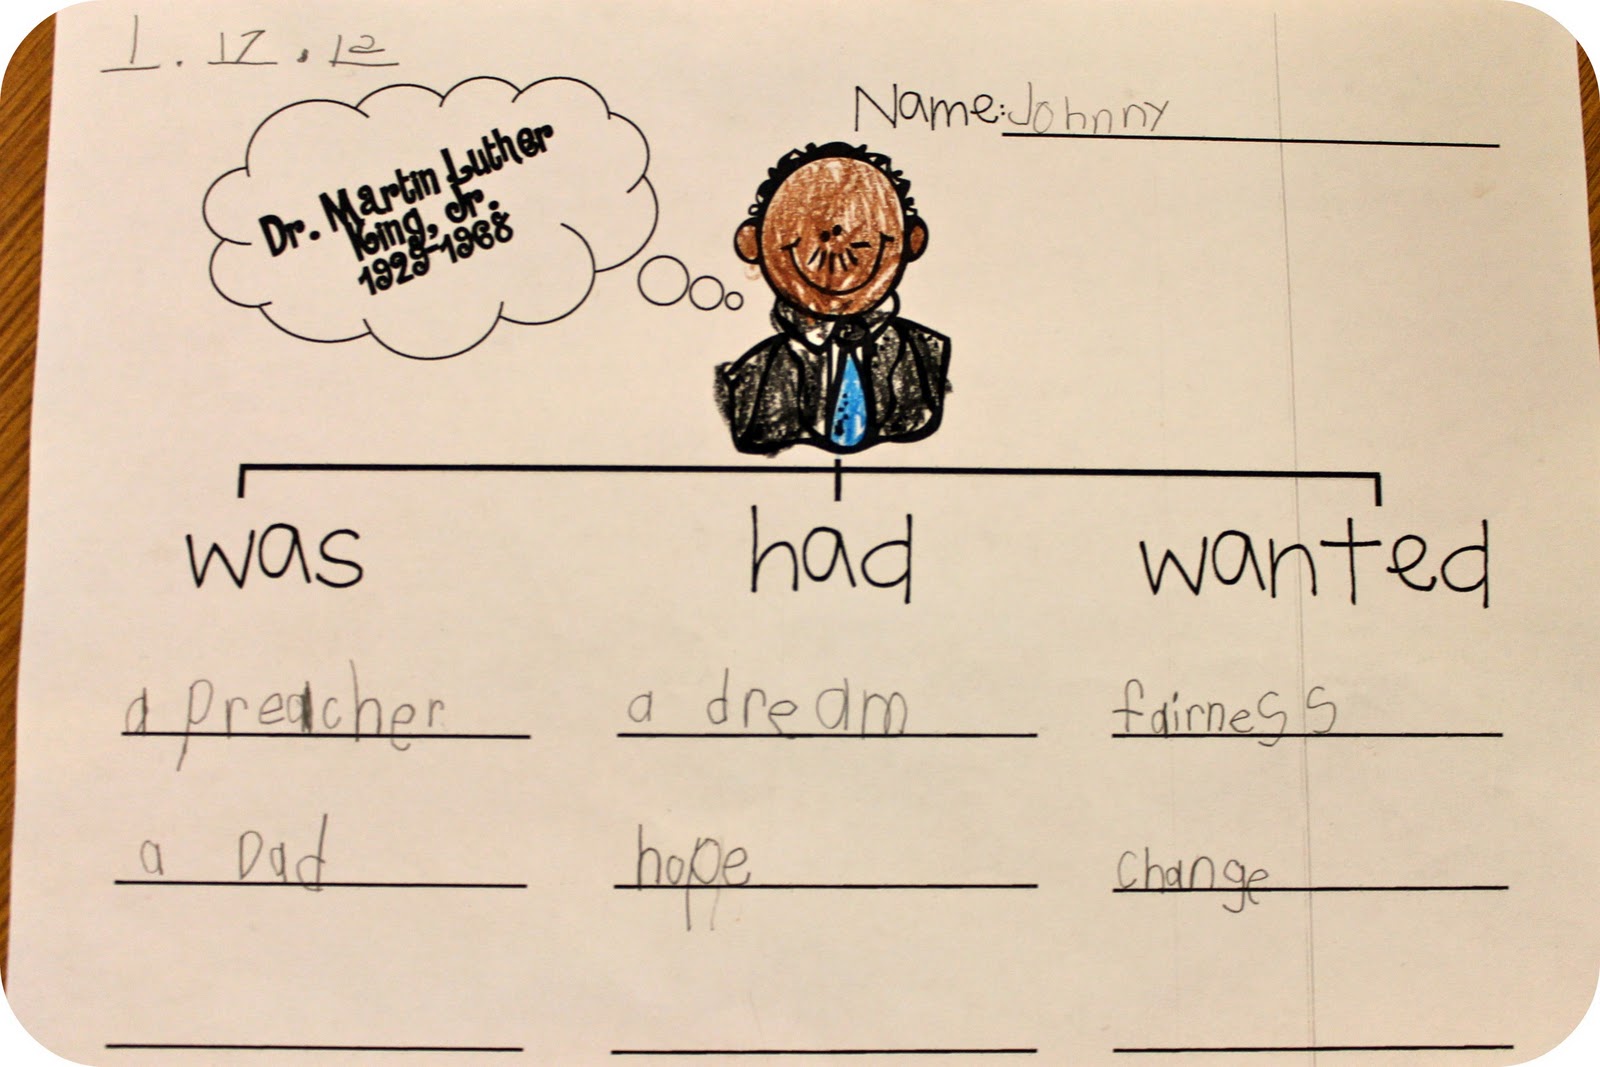 1.17.12
Name: Johnny
Dr. Martin Luther
King, Jr.
1929-1968
was had wanted
a preacher a dream fairness
a Dad hope change